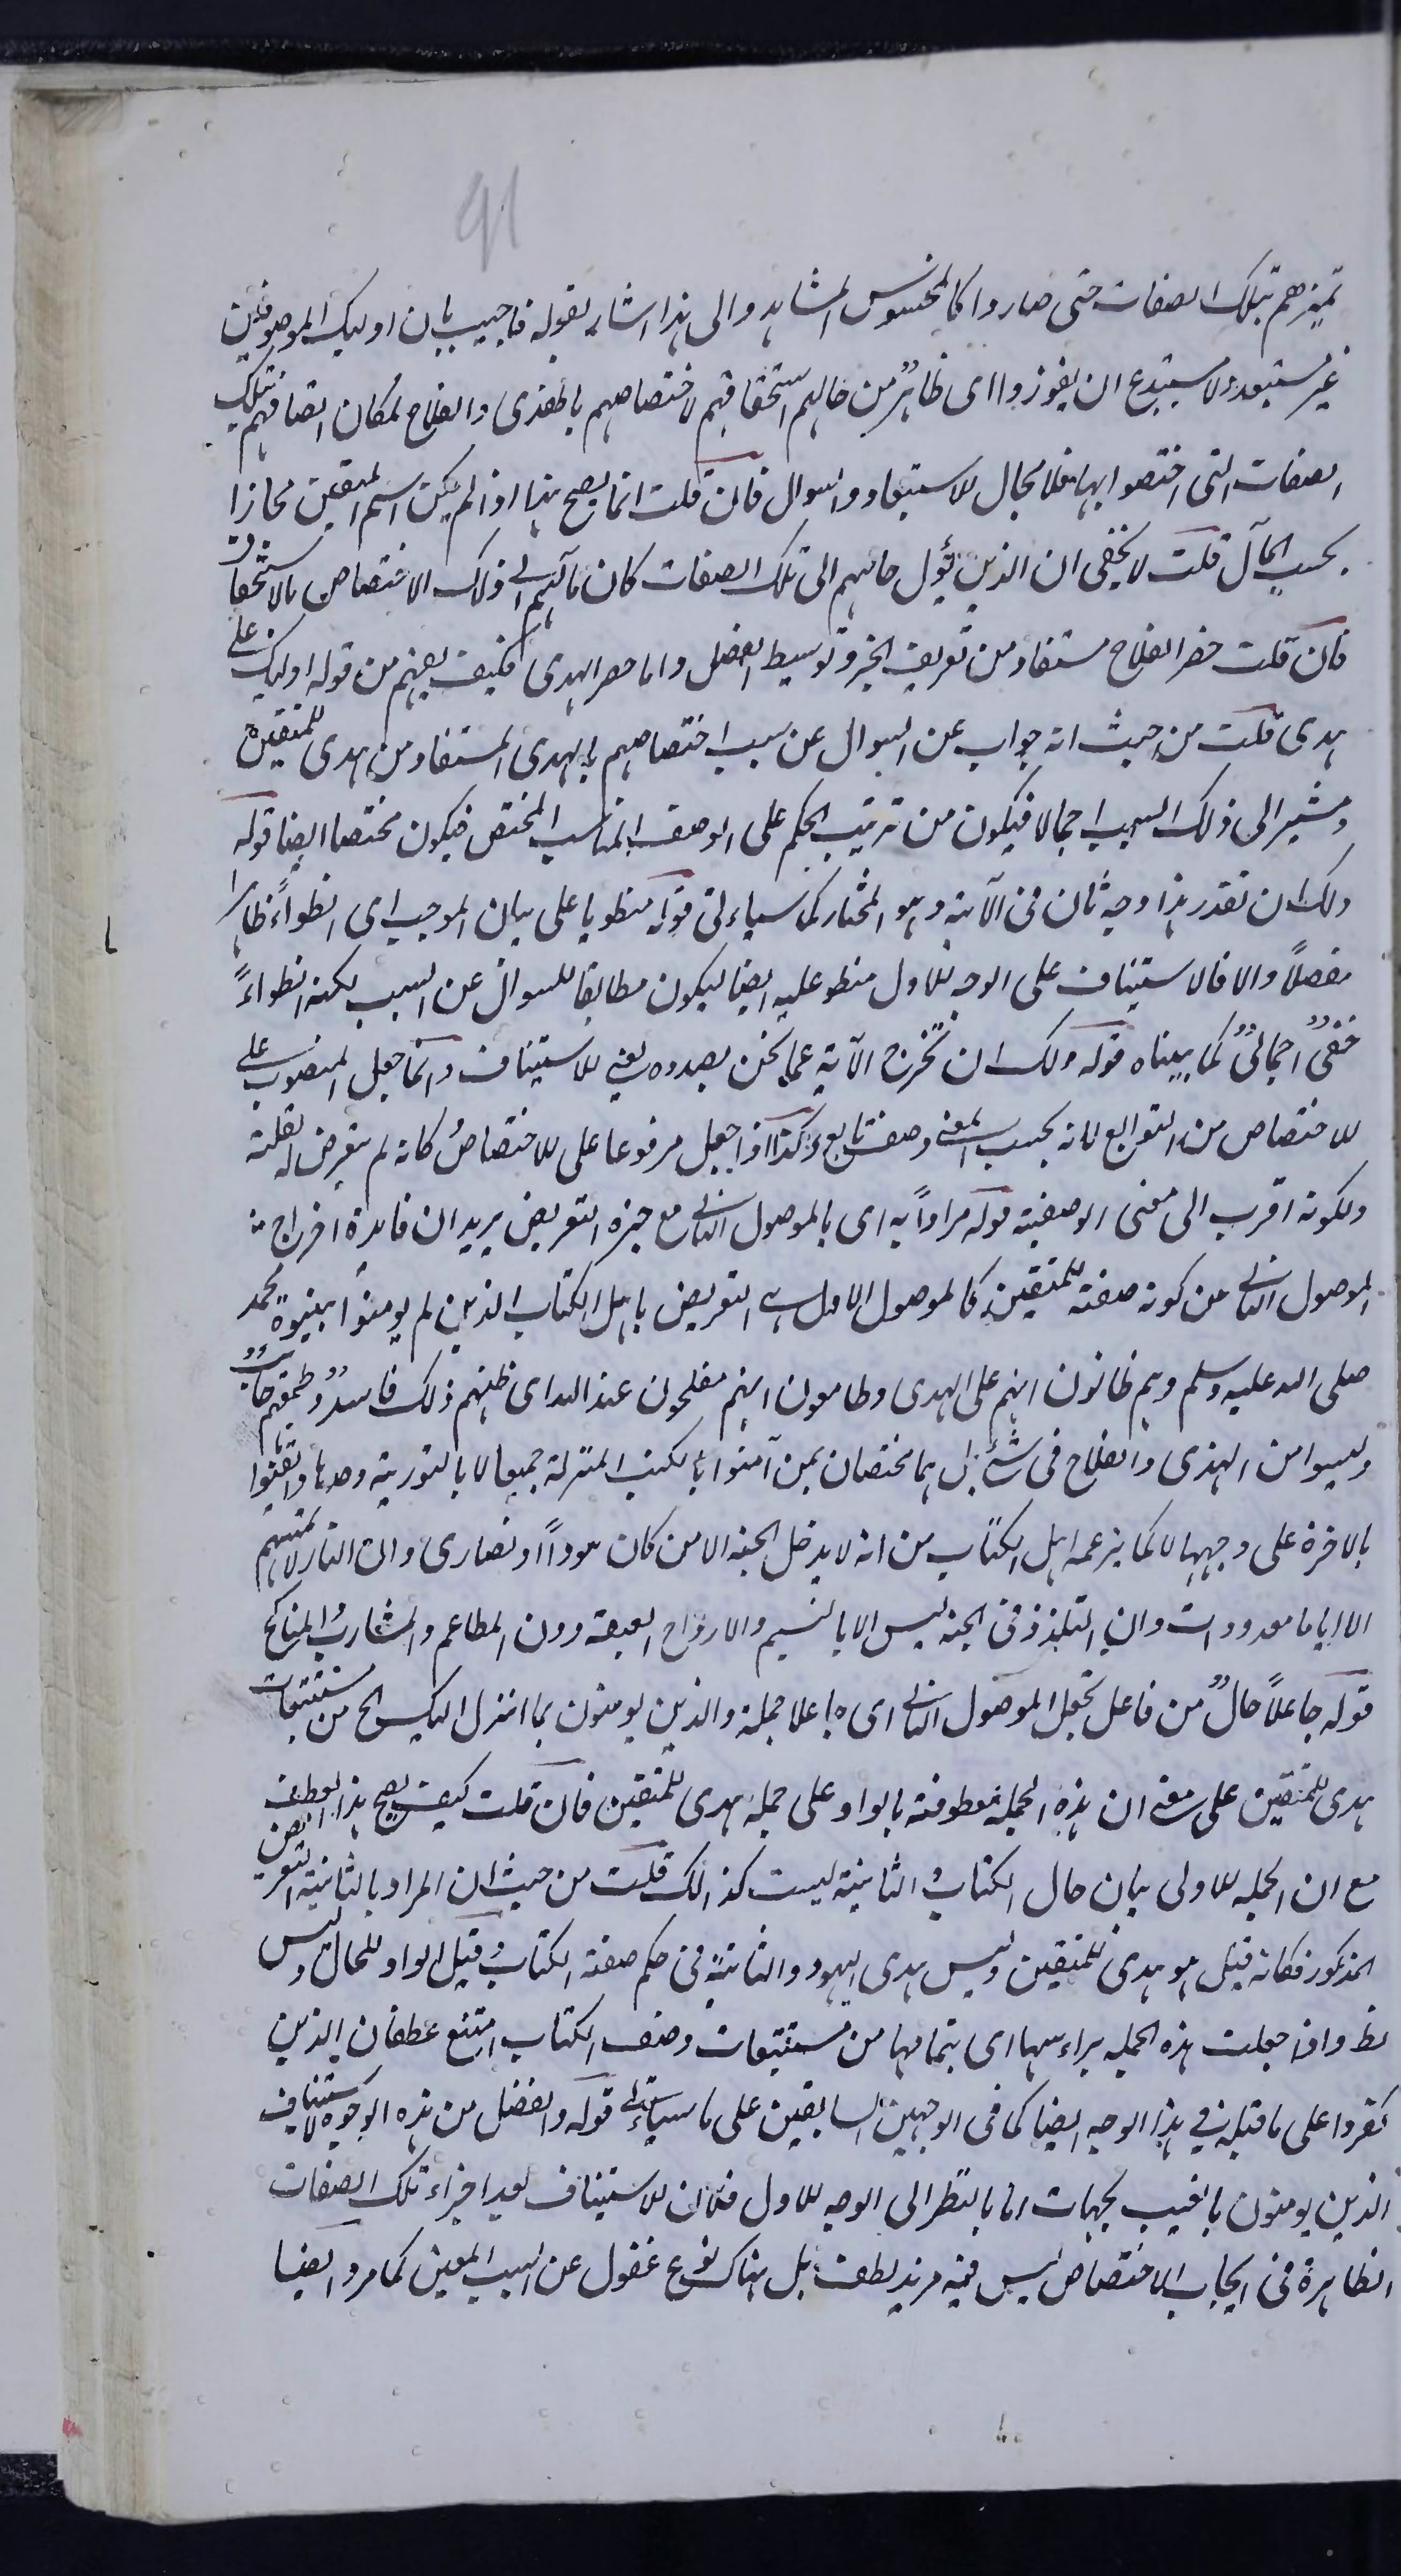 91
تميزهم بتلك الصفات حتى صاروا كالمحسوس المشاهد والى هذا اشار بقوله فاجيب بان اولئك الموصوفين
غير مستبعد ولا مستبدع ان يفوزوا اى ظاهرٌ من حالهم استحقاقهم لاختصاصهم بالهدى والفلاح لمكان اتصافهم بتلك
الصفات التى اختصوا بها فلا مجال للاستبعاد والسوال فان قلت انما يصح هذا اذا لم يكن اسم المتقين مجازا
بحسب المآل قلت لا يخفى ان الذين يؤل حالهم الى تلك الصفات كان مآلهم الى ذلك الاختصاص بالاستحقاق
فان قلت حصر الفلاح مستفاد من تعريف الخبر وتوسيط الفصل واما حصر الهدى فكيف يفهم من قوله اوليك على
هدى قلت من حيث انه جواب عن السوال عن سبب اختصاصهم بالهدى المستفاد من هدى للمتقين
ومشير الى ذلك السبب اجمالا فيكون من ترتيب الحكم على الوصف المناسب المختص فيكون مختصا ايضا قوله
ولك ان تقدر هذا وجه ثان فى الآية وهو المختار كما سياتى قوله منطويا على بيان الموجب اى انطواءً ظاهرا
مفصلاً والا فالاستيناف على الوجه الاول منطو عليه ايضا ليكون مطابقا للسوال عن السبب لكنه انطواءٌ
خفىٌ اجمالىٌ كما بيناه قوله ولك ان تخرج الآية عما نحن بصدده يعنى الاستيناف وانما جعل المنصوب على
الاختصاص من التوابع لانه بحسب المعنى وصف تابع وكذا اذا جعل مرفوعا على الاختصاص كانه لم يتعرض له لقلته
ولكونه اقرب الى معنى الوصفية قوله مراداً به اى بالموصول الثانى مع حيزه التعريض يريد ان فايدة اخراج
الموصول الثانى من كونه صفة للمتقين كالموصول الاول هى التعريض باهل الكتاب الذين لم يومنوا بنبوة محمد
صلى الله عليه وسلم وهم ظانون انهم على الهدى وطامعون انهم مفلحون عند الله اى ظنهم ذلك فاسدٌ وطمعهم خائبٌ
وليسوا من الهدى والفلاح فى شئ بل هما مختصان بمن آمنوا بالكتب المنزلة جميعا لا بالتورية وحدها وايقنوا
بالاخرة على وجهها لا كما يزعمه اهل الكتاب من انه لا يدخل الجنة الا من كان هوداً او نصارى وان النار لا تمسهم
الا اياما معدودات وان التلذذ فى الجنة ليس الا بالنسيم والارواح العبقة دون المطاعم والمشارب والمناكح
قوله جاعلاً حالٌ من فاعل تجعل الموصول الثانى اى جاعلا جملة والذين يومنون بما انزل اليك الخ من مستتبعات
هدى للمتقين على معنى ان هذه الجملة معطوفة بالواو على جملة هدى للمتقين فان قلت كيف يصح هذا العطف
مع ان الجملة الاولى بيان حال الكتاب والثانية ليست كذالك قلت من حيث ان المراد بالثانية التعريض
المذكور فكانه قيل هو هدى للمتقين وليس هدى اليهود والثانية فى حكم صفة الكتاب وقيل الواو للحال وليس
بظ واذا جعلت هذه الجملة براءسها اى بتمامها من مستتبعات وصف الكتاب امتنع عطف ان الذين
كفروا على ما قبله فى هذا الوجه ايضا كما فى الوجهين السابقين على ما سياتى قوله والفضل من هذه الوجوه لاستيناف
الذين يومنون بالغيب بجهات اما بالنظر الى الوجه الاول فلان الاستيناف بعد اجراء تلك الصفات
الظاهرة فى ايجاب الاختصاص ليس فيه مزيد لطف بل هناك نوع غفول عن السبب المعين كما مر وايضا